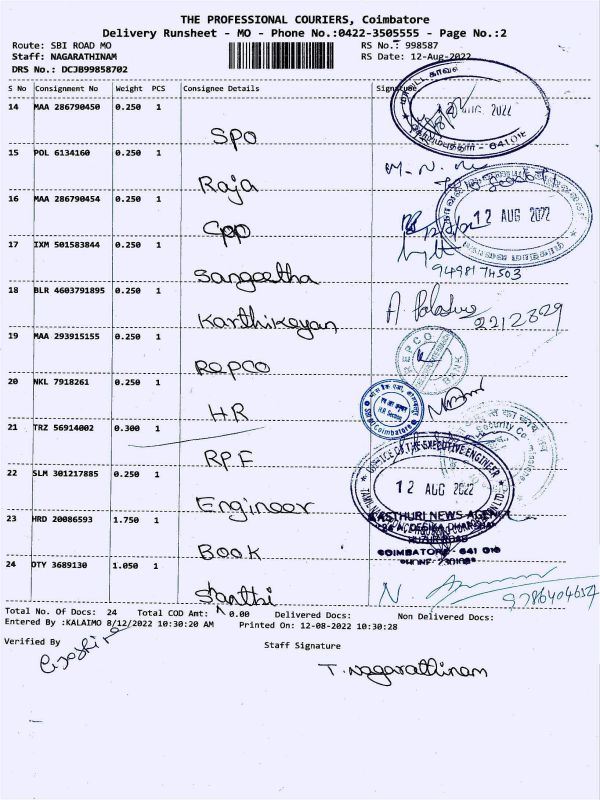 THE PROFESSIONAL COURIERS, Coimbatore
Delivery Runsheet - MO - Phone No.:0422-3505555 - Page No.:2
Route: SBI ROAD MO RS No.: 998587
Staff: NAGARATHINAM RS Date: 12-Aug-2022
DRS No.: DCJB99858702
S No Consignment No Weight PCS Consignee Details Signature
14 MAA 286790450 0.250 1
SPO
AUG. 2022
641 018
15 POL 6134160 0.250 1
Raja
16 MAA 286790454 0.250 1
CPO
12 AUG 2022
17 IXM 501583844 0.250 1
Sangeetha
9498174503
18 BLR 4603791895 0.250 1
Karthikeyan
2212329
19 MAA 293915155 0.250 1
REPCO
REPCO BANK
20 NKL 7918261 0.250 1
HR
21 TRZ 56914002 0.300 1
RPF
Security Co
22 SLM 301217885 0.250 1
Engineer
OFFICE OF THE EXECUTIVE ENGINEER
12 AUG 2022
23 HRD 20086593 1.750 1
Book
KASTHURI NEWS AGENCY
COIMBATORE - 641 018
24 OTY 3689130 1.050 1
Shanthi
9786404657
Total No. Of Docs: 24 Total COD Amt: 0.00 Delivered Docs: Non Delivered Docs:
Entered By :KALAIMO 8/12/2022 10:30:20 AM Printed On: 12-08-2022 10:30:28
Verified By Staff Signature
T. Nagarathinam